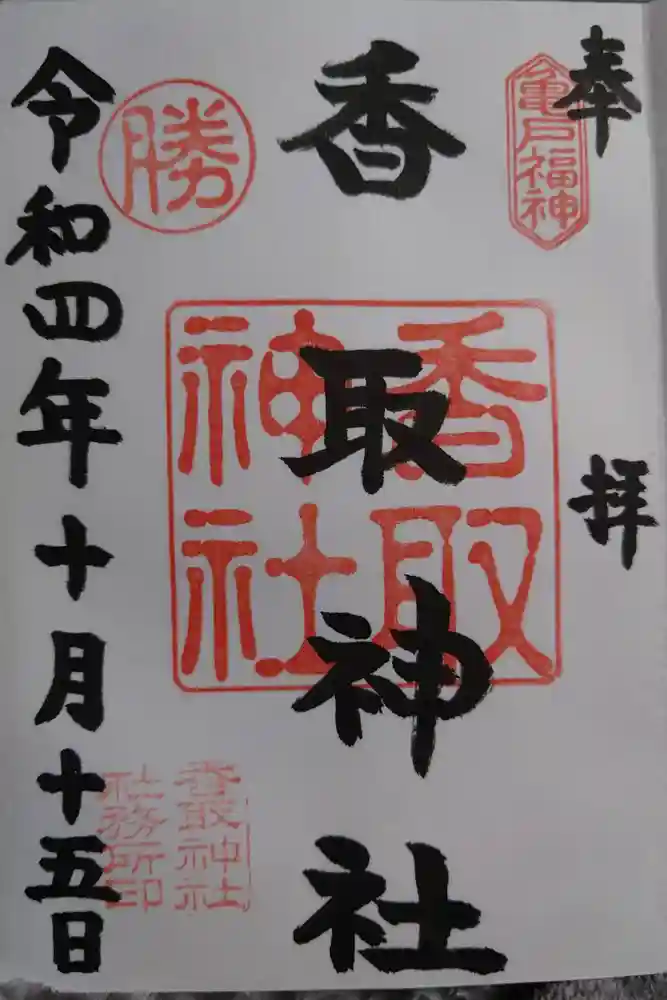 奉拝
亀戸福神
香取神社
香取
神社
勝
令和四年十月十五日
香取神社
社務所印